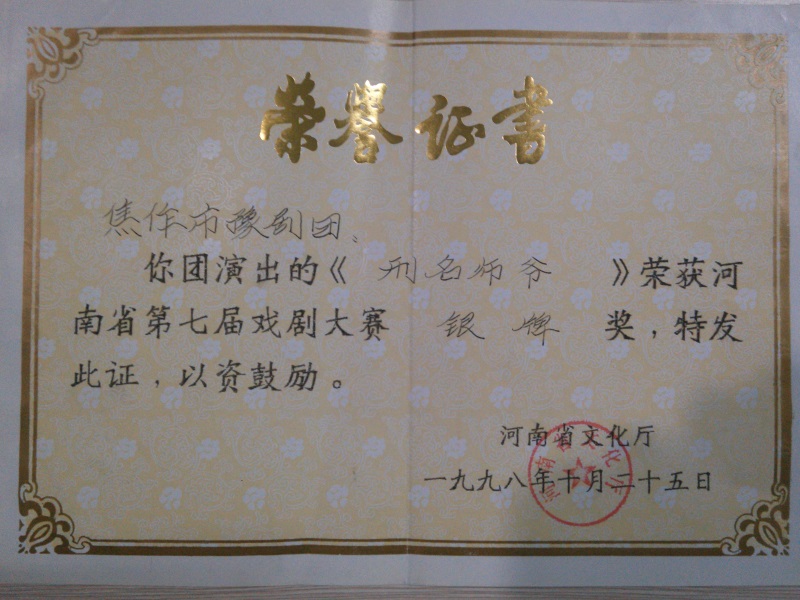 荣誉证书
焦作市豫剧团、
你团演出的《刑名师爷》荣获河
南省第七届戏剧大赛 银牌 奖，特发
此证，以资鼓励。
河南省文化厅
一九九八年十月二十五日
河南省文化厅